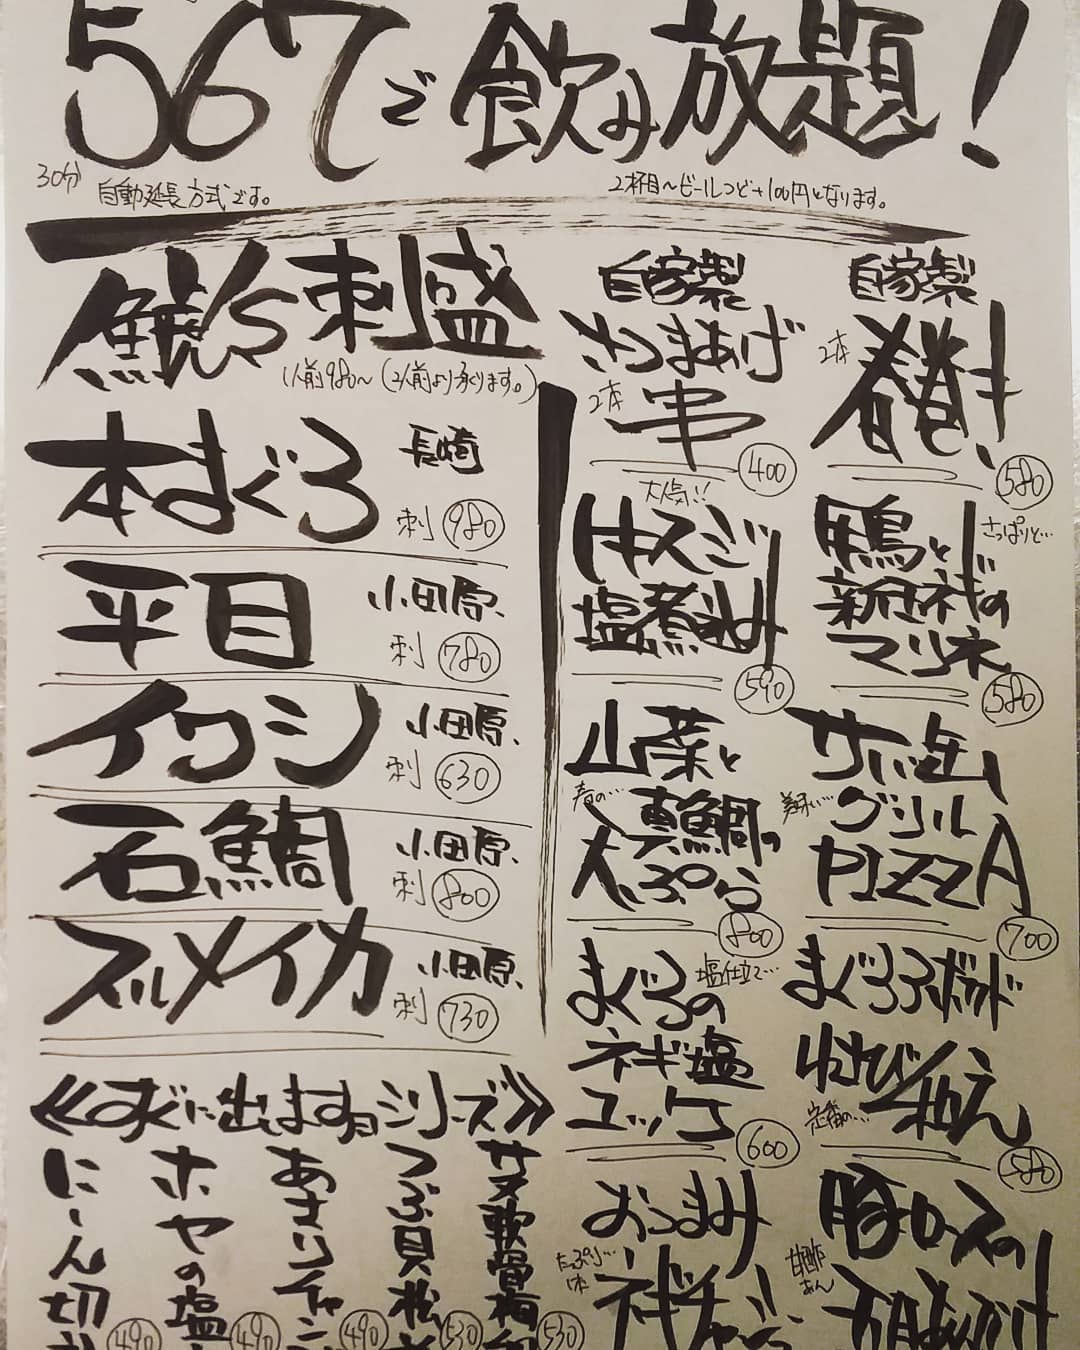 567で飲み放題!
30分 自動延長方式です。
2杯目〜ビールつど+100円となります。
鯱's 刺盛
1人前980〜(2人前より承ります。)
本まぐろ 長崎
刺 980
平目 小田原、
刺 780
イワシ 小田原、
刺 630
石鯛 小田原、
刺 800
スルメイカ 小田原、
刺 730
自家製
さつまあげ
2本 串
400
自家製
2本 春巻き
580
大人気!!
牛スジ
塩煮込み
590
さっぱりと…
鴨と
新ネギの
マリネ
580
山菜と
春の… 真鯛の
天ぷら
800
サバ缶
美味い… グリル
PIZZA
700
まぐろの
塩仕立て…
ネギ塩
ユッケ
600
まぐろアボカド
わさび和え
定番の…
580
おつまみ
たっぷり…
ネギチャーシュー
豚ロースの
甘酢あん
《すぐに出ますョシリーズ》
サメ軟骨梅
530
つぶ貝松
530
あさりチャン
490
ホヤの塩
490
に〜ん切
490